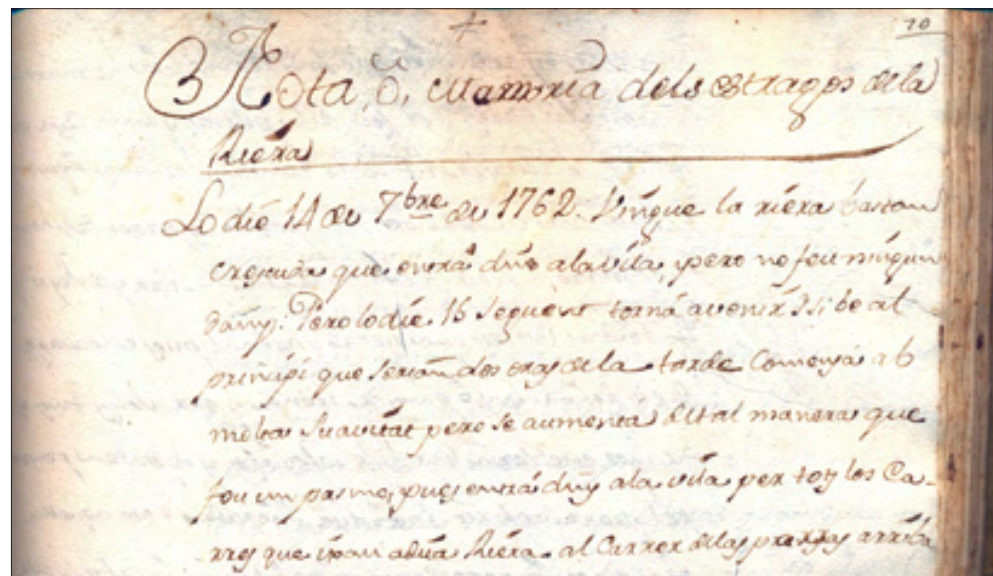 70
Nota, ó, Mamoria dels estragos de la
Riera
Lo die 14 de 7bre de 1762. Vingue la riera bastant
crescuda que entrá dins a la vila, pero no feu ningun
dany. Pero lo die 16 seguent torná a venir, Y si be al
principi que serian dos oras de la tarde Comensá ab
molta Suavitat pero se aumentá de tal manera que
fou un pasme, pues entrá dins a la vila per tots los Ca-
rres que ixan a dita Riera. al Carrer de las arribá